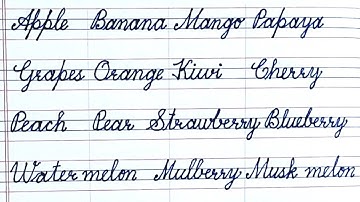 Apple Banana Mango Papaya
Grapes Orange Kiwi Cherry
Peach Pear Strawberry Blueberry
Water melon Mulberry Musk melon